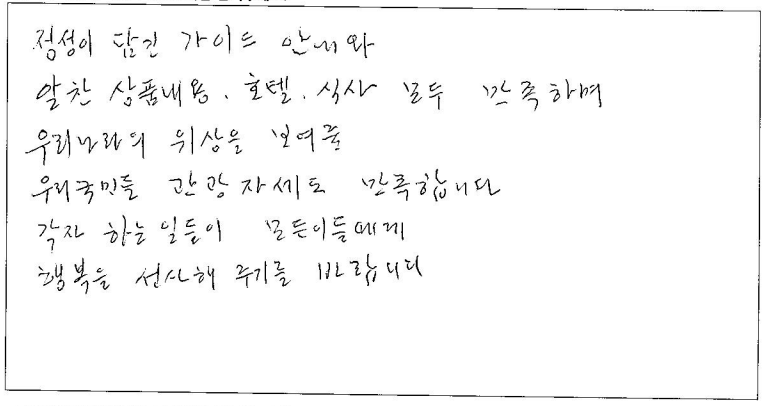 정성이 담긴 가이드 안내와
알찬 상품내용. 호텔. 식사 모두 만족하며
우리나라의 위상을 보여준
우리국민들 관광자세도 만족합니다
각자 하는 일들이 모든이들에게
행복을 선사해 주기를 바랍니다